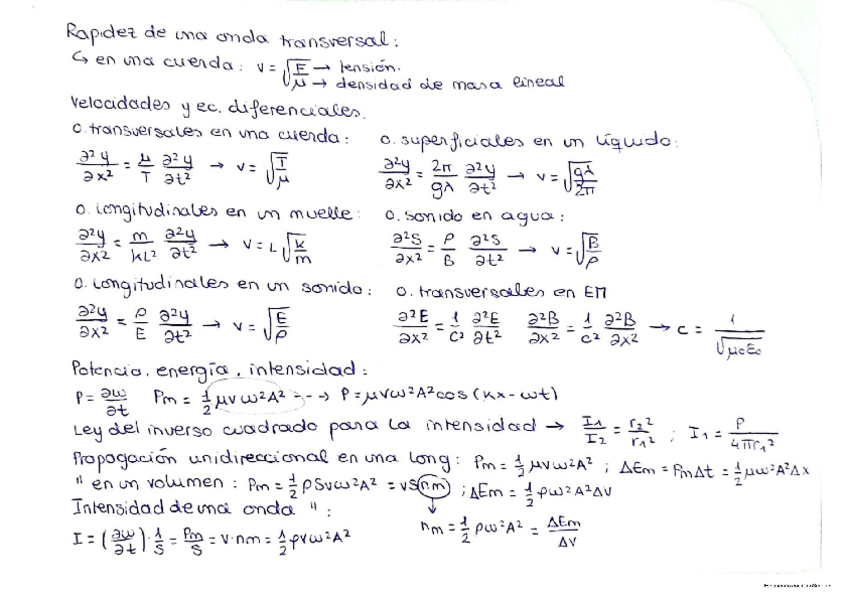 Rapidez de una onda transversal:
↳ en una cuerda: v = √(E/μ) → tensión.
→ densidad de masa lineal
Velocidades y ec. diferenciales.
O. transversales en una cuerda:
∂²y/∂x² = μ/T ∂²y/∂t² → v = √(T/μ)
O. superficiales en un líquido:
∂²y/∂x² = 2π/gλ ∂²y/∂t² → v = √(gλ/2π)
O. longitudinales en un muelle:
∂²y/∂x² = m/kL² ∂²y/∂t² → v = L√(k/m)
O. sonido en agua:
∂²S/∂x² = ρ/B ∂²S/∂t² → v = √(B/ρ)
O. longitudinales en un sonido:
∂²y/∂x² = ρ/E ∂²y/∂t² → v = √(E/ρ)
O. transversales en EM
∂²E/∂x² = 1/c² ∂²E/∂t² ∂²B/∂x² = 1/c² ∂²B/∂x² → c = 1/√(μ₀ε₀)
Potencia, energía, intensidad:
P = ∂w/∂t Pm = 1/2 μvω²A² --→ P = μvω²A²cos(kx - ωt)
Ley del inverso cuadrado para la intensidad → I₁/I₂ = r₂²/r₁² ; I₁ = P/4πr₁²
Propogación unidireccional en una long: Pm = 1/2 μvω²A² ; ΔEm = PmΔt = 1/2 μω²A²Δx
" en un volumen: Pm = 1/2 ρSvω²A² = vS(nm) ; ΔEm = 1/2 ρω²A²ΔV
Intensidad de una onda ":
nm = 1/2 ρω²A² = ΔEm/ΔV
I = (∂w/∂t)·1/S = Pm/S = v·nm = 1/2 ρvω²A²